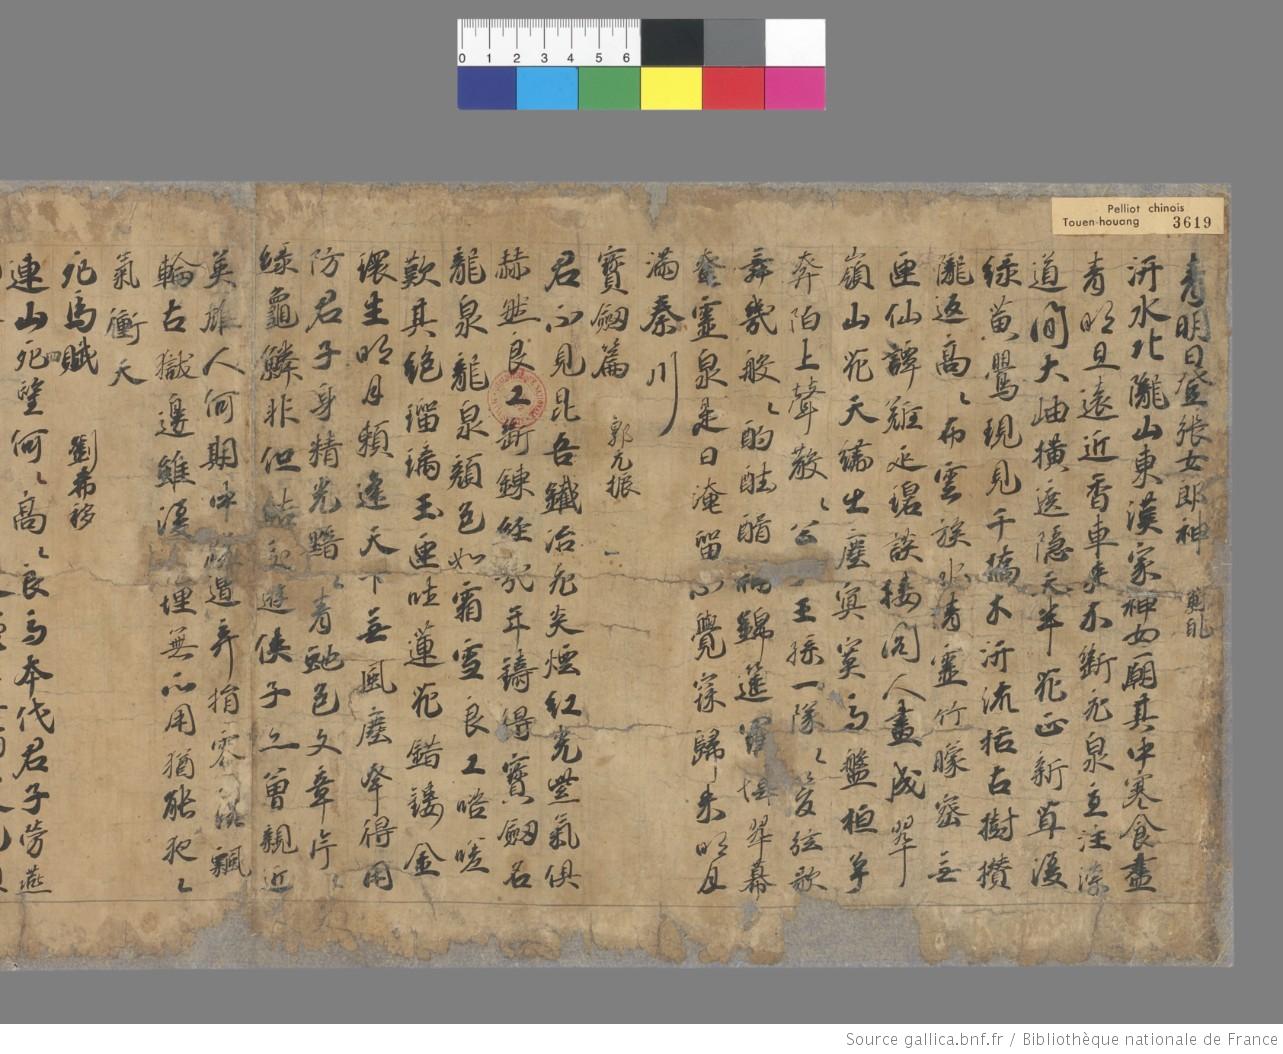 Pelliot chinois
Touen-houang 3619
0 1 2 3 4 5 6
青明日登張女郎神
汧水北隴山東漢家神女廟其中寒食盡
青明旦遠近香車來不斷飛泉直注
道間大岫橫遮隱天半花正新草復
綠黃鶯現見千喬木汧流括古樹攢
隴返高〻布雲族水清靈竹曚密無
匝仙譚難延碧談樓閣人畫成翠
嶺山花天繡生塵冥寞馬盤柏草
奔陌上聲散〻公王孫一隊〻管弦歌
舞幾般〻酌醑錦筵翠幕
靈泉是日淹留不覺寐歸來明月
滿秦川
寶劍篇 郭元振
君不見昆吾鐵冶飛炎煙紅光紫氣俱
赫然良工鍛鍊經幾年鑄得寶劍名
龍泉龍泉顏色如霜雪良工咨嗟
歎其絕瑠璃玉匣吐蓮花錯鏤金
環生明月賴逢天下無風塵幸得用
防君子身精光黯〻青虵色文章片〻
綠龜鱗非但結交遊俠子亦曾親近
英雄人何期中道弃捐零落飄
輪古獄邊雖復埋無所用猶能夜〻
氣衝天
死馬賦 劉希移
連山死望何〻高〻良馬本代君子勞燕
Source gallica.bnf.fr / Bibliothèque nationale de France